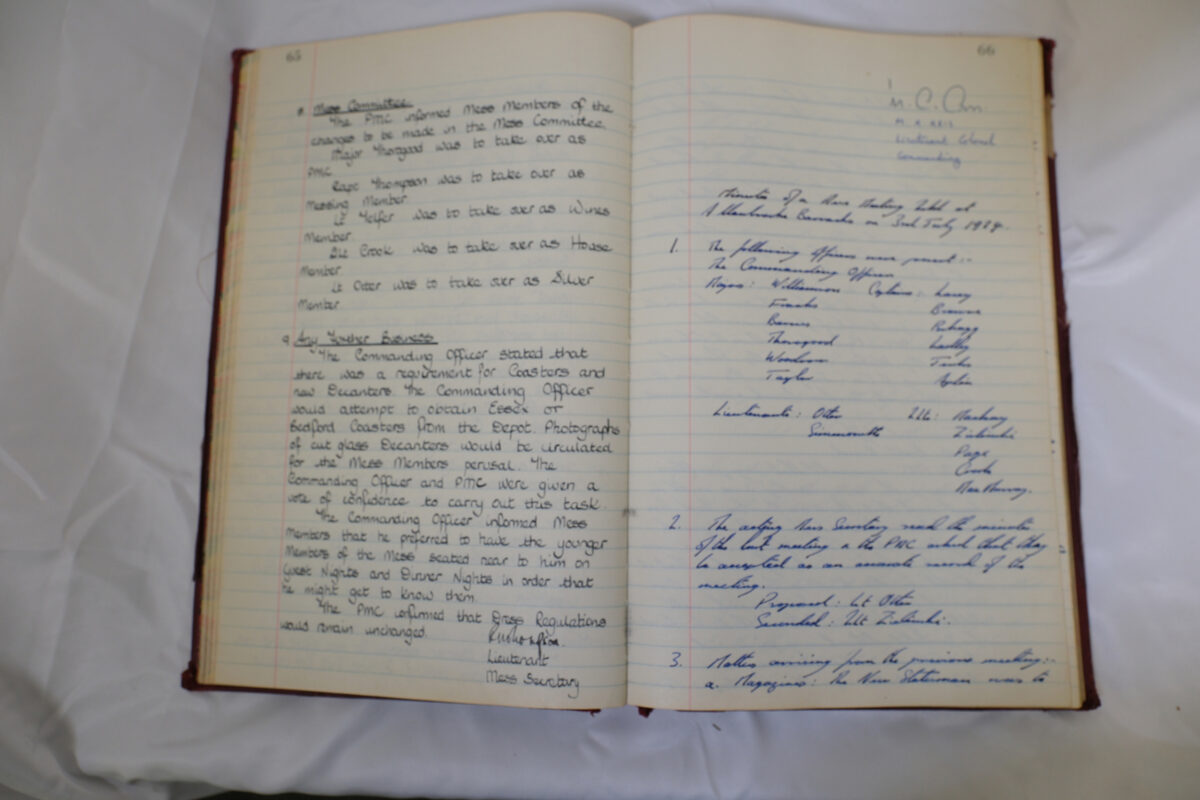 65
8. Mess Committee.
The PMC informed Mess Members of the
changes to be made in the Mess Committee.
Major Thorogood was to take over as
PMC.
Capt Thompson was to take over as
Messing Member.
Lt Telfer was to take over as Wines
Member.
2Lt Crook was to take over as House
Member.
Lt Otter was to take over as Silver
Member.
9. Any Further Business
The Commanding Officer stated that
there was a requirement for Coasters and
new Decanters. The Commanding Officer
would attempt to obtain Essex or
Bedford Coasters from the Depot. Photographs
of cut glass Decanters would be circulated
for the Mess Members perusal. The
Commanding Officer and PMC were given a
vote of confidence to carry out this task.
The Commanding Officer informed Mess
Members that he preferred to have the younger
Members of the Mess seated near to him on
Guest Nights and Dinner Nights in order that
he might get to know them.
The PMC confirmed that Dress Regulations
would remain unchanged.
Lieutenant
Mess Secretary
66
Lieutenant Colonel
Commanding
Minutes of a Mess Meeting held at
Alanbrooke Barracks on 3rd July
1. The following Officers were present :-
The Commanding Officer
Majors: Williamson Captains: Lacey
Franks Browne
Barnes
Thorogood
Woodrow
Taylor
Lieutenants: Otter 2Lts:
Page
Crook
2. The acting Mess Secretary read the minutes
of the last meeting & the PMC asked that they
be accepted as an accurate record of the
meeting.
Proposed: Lt Otter
Seconded: 2Lt
3. Matters arising from the previous meeting:-
a. Magazines: The New Statesman was to